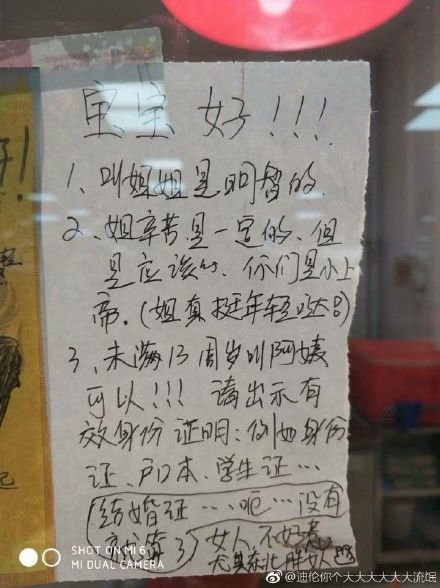 宝宝好!!!
1、叫姐姐是明智的.
2、姐辛苦是一定的、但
是应该的、你们是小上
帝.(姐真挺年轻哒)
3、未满13周岁叫阿姨
可以!!! 请出示有
效身份证明:例如身份
证、户口本、学生证…
(结婚证…呃…没有
就算了)女人不好
SHOT ON MI 6
MI DUAL CAMERA
@迪伦你个大大大大大大流氓